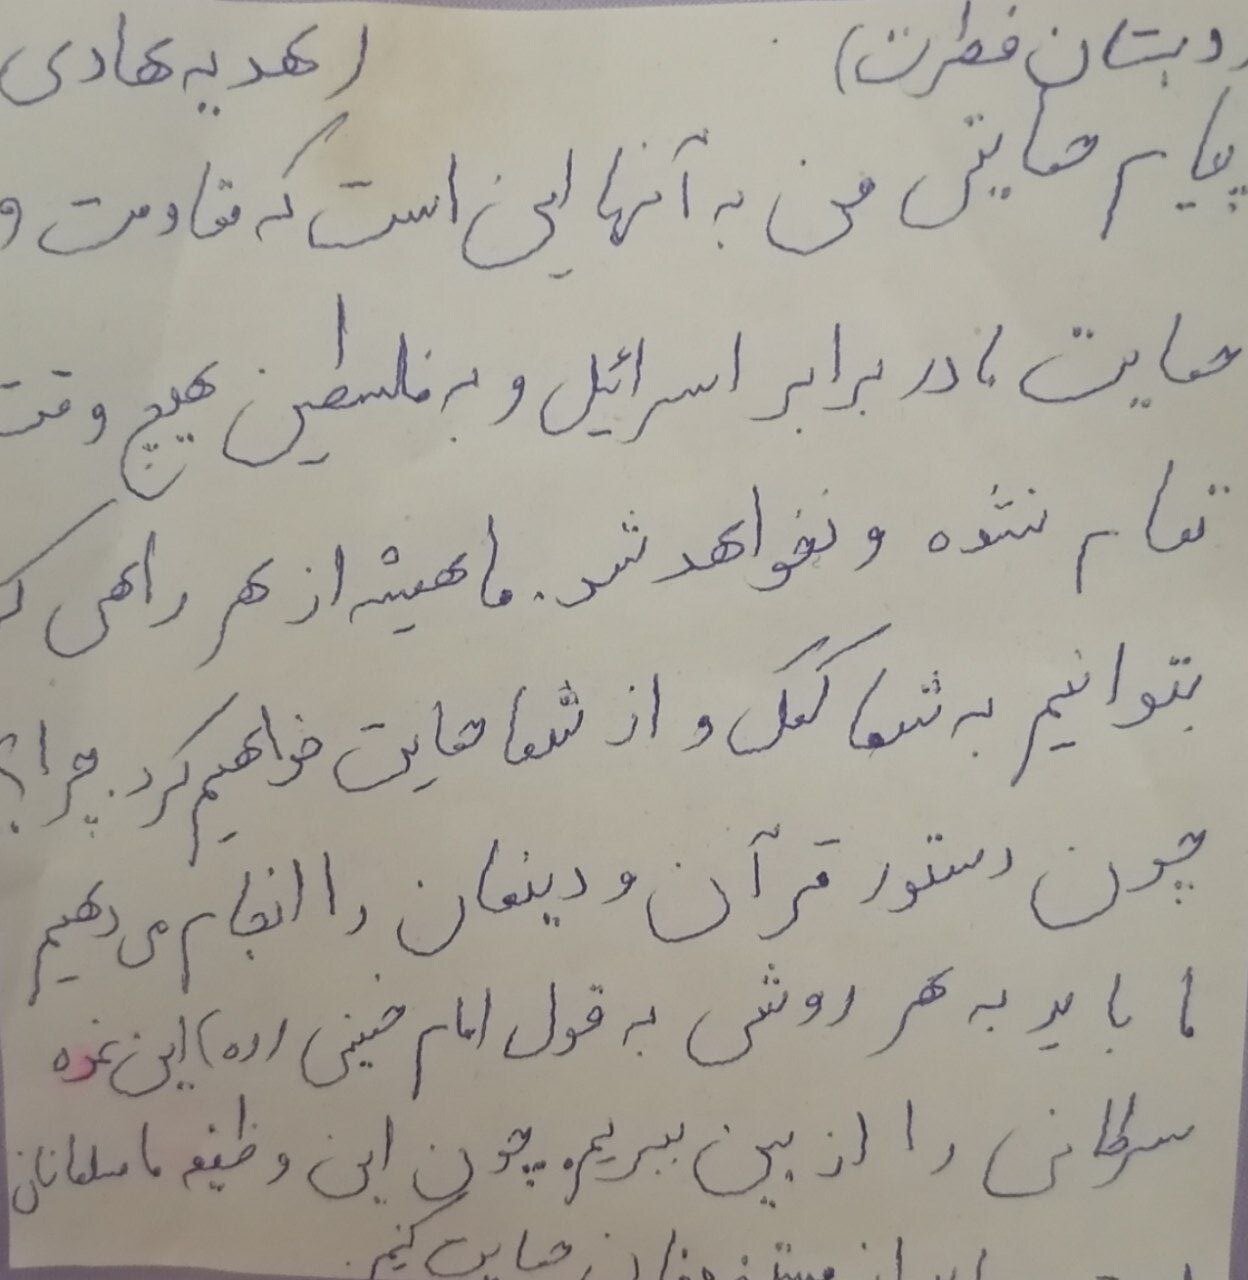 (دبستان فطرت) (هدیه هادی
پیام حمایتی من به آنها این است که مقاومت و
حمایت ما در برابر اسرائیل و به فلسطین هیچ وقت
تمام نشده و نخواهد شد. ما همیشه از هر راهی که
بتوانیم به شما کمک و از شما حمایت خواهیم کرد. چرا؟
چون دستور قرآن و دینمان را انجام می دهیم
ما باید به هر روشی به قول امام خمینی (ره) این غده
سرطانی را از بین ببریم. چون این وظیفه ما مسلمانان
از مستضعفان حمایت کنیم.